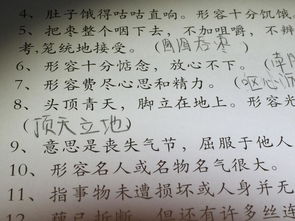 4、肚子饿得咕咕直响。形容十分饥饿。
5、把枣整个咽下去，不加咀嚼，不辨
考,笼统地接受。(囫囵吞枣
6、形容十分惦念，放心不下。(牵
7、形容费尽心思和精力。(呕心沥
8、头顶青天，脚立在地上。形容光
(顶天立地)
9、意思是丧失气节，屈服于他人
10、形容名人或名物名气很大。
11、指事物未遭损坏或人身并无
12、藕已折断，但还有许多丝连